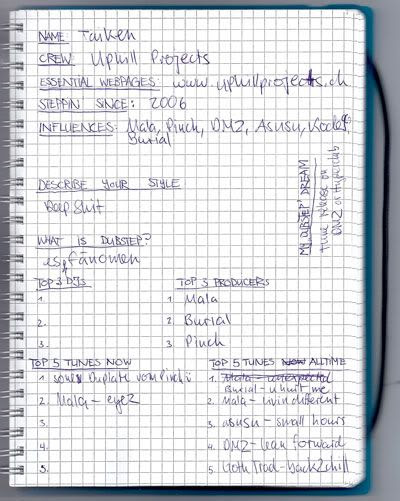 NAME Tarken
CREW Uphill Projects
ESSENTIAL WEBPAGES: www.uphillprojects.ch
STEPPIN SINCE: 2006
INFLUENCES: Mala, Pinch, DMZ, Asusu, Kode9,
Burial
DESCRIBE YOUR STYLE
Deep Shit
WHAT IS DUBSTEP?
fänomen
MY DUBSTEP DREAM
Tune release on
DMZ or Hyperdub
TOP 3 DJs
1.
2.
3.
TOP 3 PRODUCERS
1 Mala
2 Burial
3 Pinch
TOP 5 TUNES NOW
1 Dubplate vom Pinch
2 Mala - eyez
3.
4.
5.
TOP 5 TUNES NOW ALLTIME
1. Mala - unexpected
Burial - unite me
2. Mala - livin different
3 asusu - small hours
4. DMZ - lean forward
5 Goth Trad - back2chill